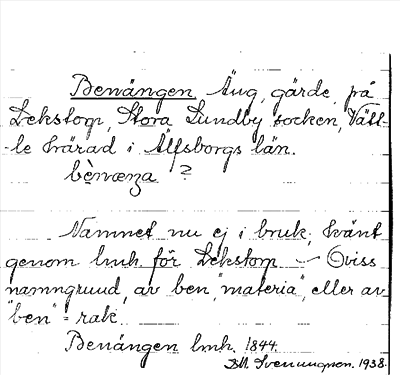 Benängen, Äng, gärde, på
Lekstorp, Stora Lundby socken, Vätt-
-le härad i Älfsborgs län.
bènæŋa ?
Namnet nu ej i bruk, känt
genom lmh. för Lekstorp – Oviss
namngrund, av ben, "materia", eller av
"ben" = rak.
Benängen lmh. 1844.
Svenungson. 1938.